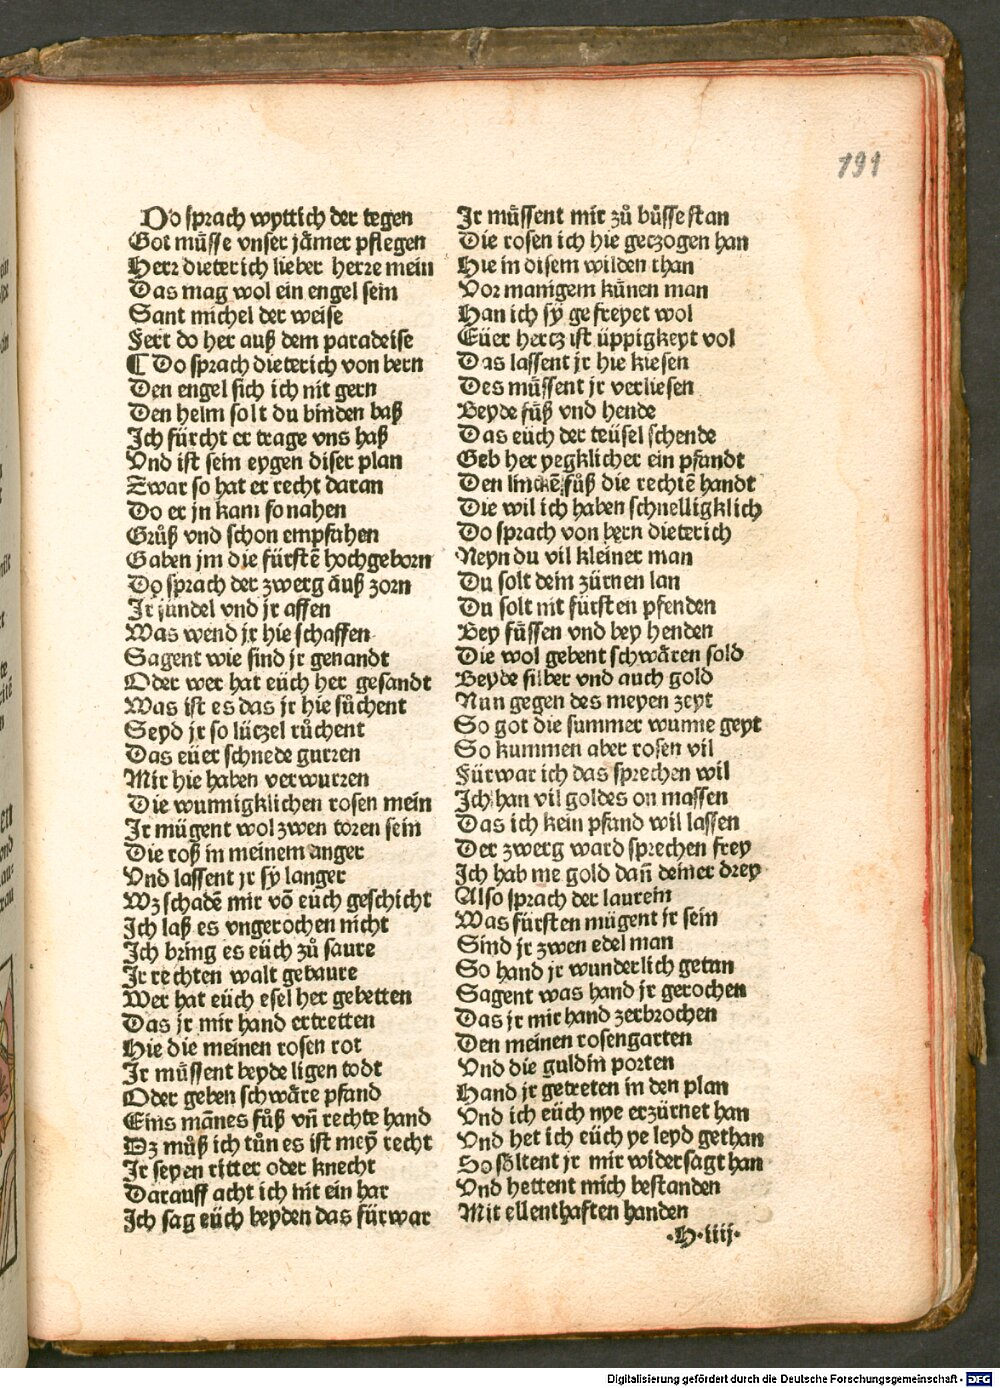 191
Do sprach wyttich der tegen
Got muͤsse vnser jaͤmer pflegen
Herr dieterich lieber herre mein
Das mag wol ein engel sein
Sant michel der weise
Fert do her auß dem paradeise
¶ Do sprach dieterich von bern
Den engel sich ich nit gern
Den helm solt du binden baß
Ich fürcht er trage vns haß
Vnd ist sein eygen diser plan
Zwar so hat er recht daran
Do er jn kam so nahen
Gruͦß vnd schon empfahen
Gaben jm die fürstē hochgeborn
Do sprach der zwerg auß zorn
Ir jündel vnd jr affen
Was wend jr hie schaffen
Sagent wie sind jr genandt
Oder wer hat eüch her gesandt
Was ist es das jr hie suͦchent
Seyd jr so lützel ruͦchent
Das eüer schnede gurren
Mir hie haben verwurren
Die wunnigklichen rosen mein
Ir mügent wol zwen toren sein
Die roß in meinem anger
Vnd lassent jr sy langer
Wz schadē mir vō eüch geschicht
Ich laß es vngerochen nicht
Ich bring es eüch zuͦ saure
Ir rechten walt gebaure
Wer hat eüch esel her gebetten
Das jr mir hand ertretten
Hie die meinen rosen rot
Ir muͤssent beyde ligen todt
Oder geben schwaͤre pfand
Eins mānes fuͦß vn̄ rechte hand
Dz muͦß ich tuͦn es ist meȳ recht
Ir seyen ritter oder knecht
Darauff acht ich nit ein har
Ich sag eüch beyden das fürwar
Ir muͤssent mir zuͦ buͤsse stan
Die rosen ich hie geczogen han
Hie in disem wilden than
Vor manigem kuͤnen man
Han ich sy gefreyet wol
Eüer hertz ist üppigkeyt vol
Das lassent jr hie kiesen
Des muͤssent jr verliesen
Beyde fuͤß vnd hende
Das eüch der teüfel schende
Geb her yegklicher ein pfandt
Den linckē fuͦß die rechtē handt
Die wil ich haben schnelligklich
Do sprach von bern dieterich
Neyn du vil kleiner man
Du solt dein zürnen lan
Du solt nit fürsten pfenden
Bey fuͤssen vnd bey henden
Die wol gebent schwaͤren sold
Beyde silber vnd auch gold
Nun gegen des meyen zeyt
So got die summer wunne geyt
So kummen aber rosen vil
Fürwar ich das sprechen wil
Ich han vil goldes on massen
Das ich kein pfand wil lassen
Der zwerg ward sprechen frey
Ich hab me gold dan̄ deiner drey
Also sprach der laurein
Was fürsten mügent ir sein
Sind jr zwen edel man
So hand jr wunderlich getan
Sagent was hand jr gerochen
Das jr mir hand zerbrochen
Den meinen rosengarten
Vnd die guldin porten
Hand jr getreten in den plan
Vnd ich eüch nye erzürnet han
Vnd het ich eüch ye leyd gethan
So soͤltent jr mir widersagt han
Vnd hettent mich bestanden
Mit ellenthaften handen
·H·iiij·
Digitalisierung gefördert durch die Deutsche Forschungsgemeinschaft - DFG